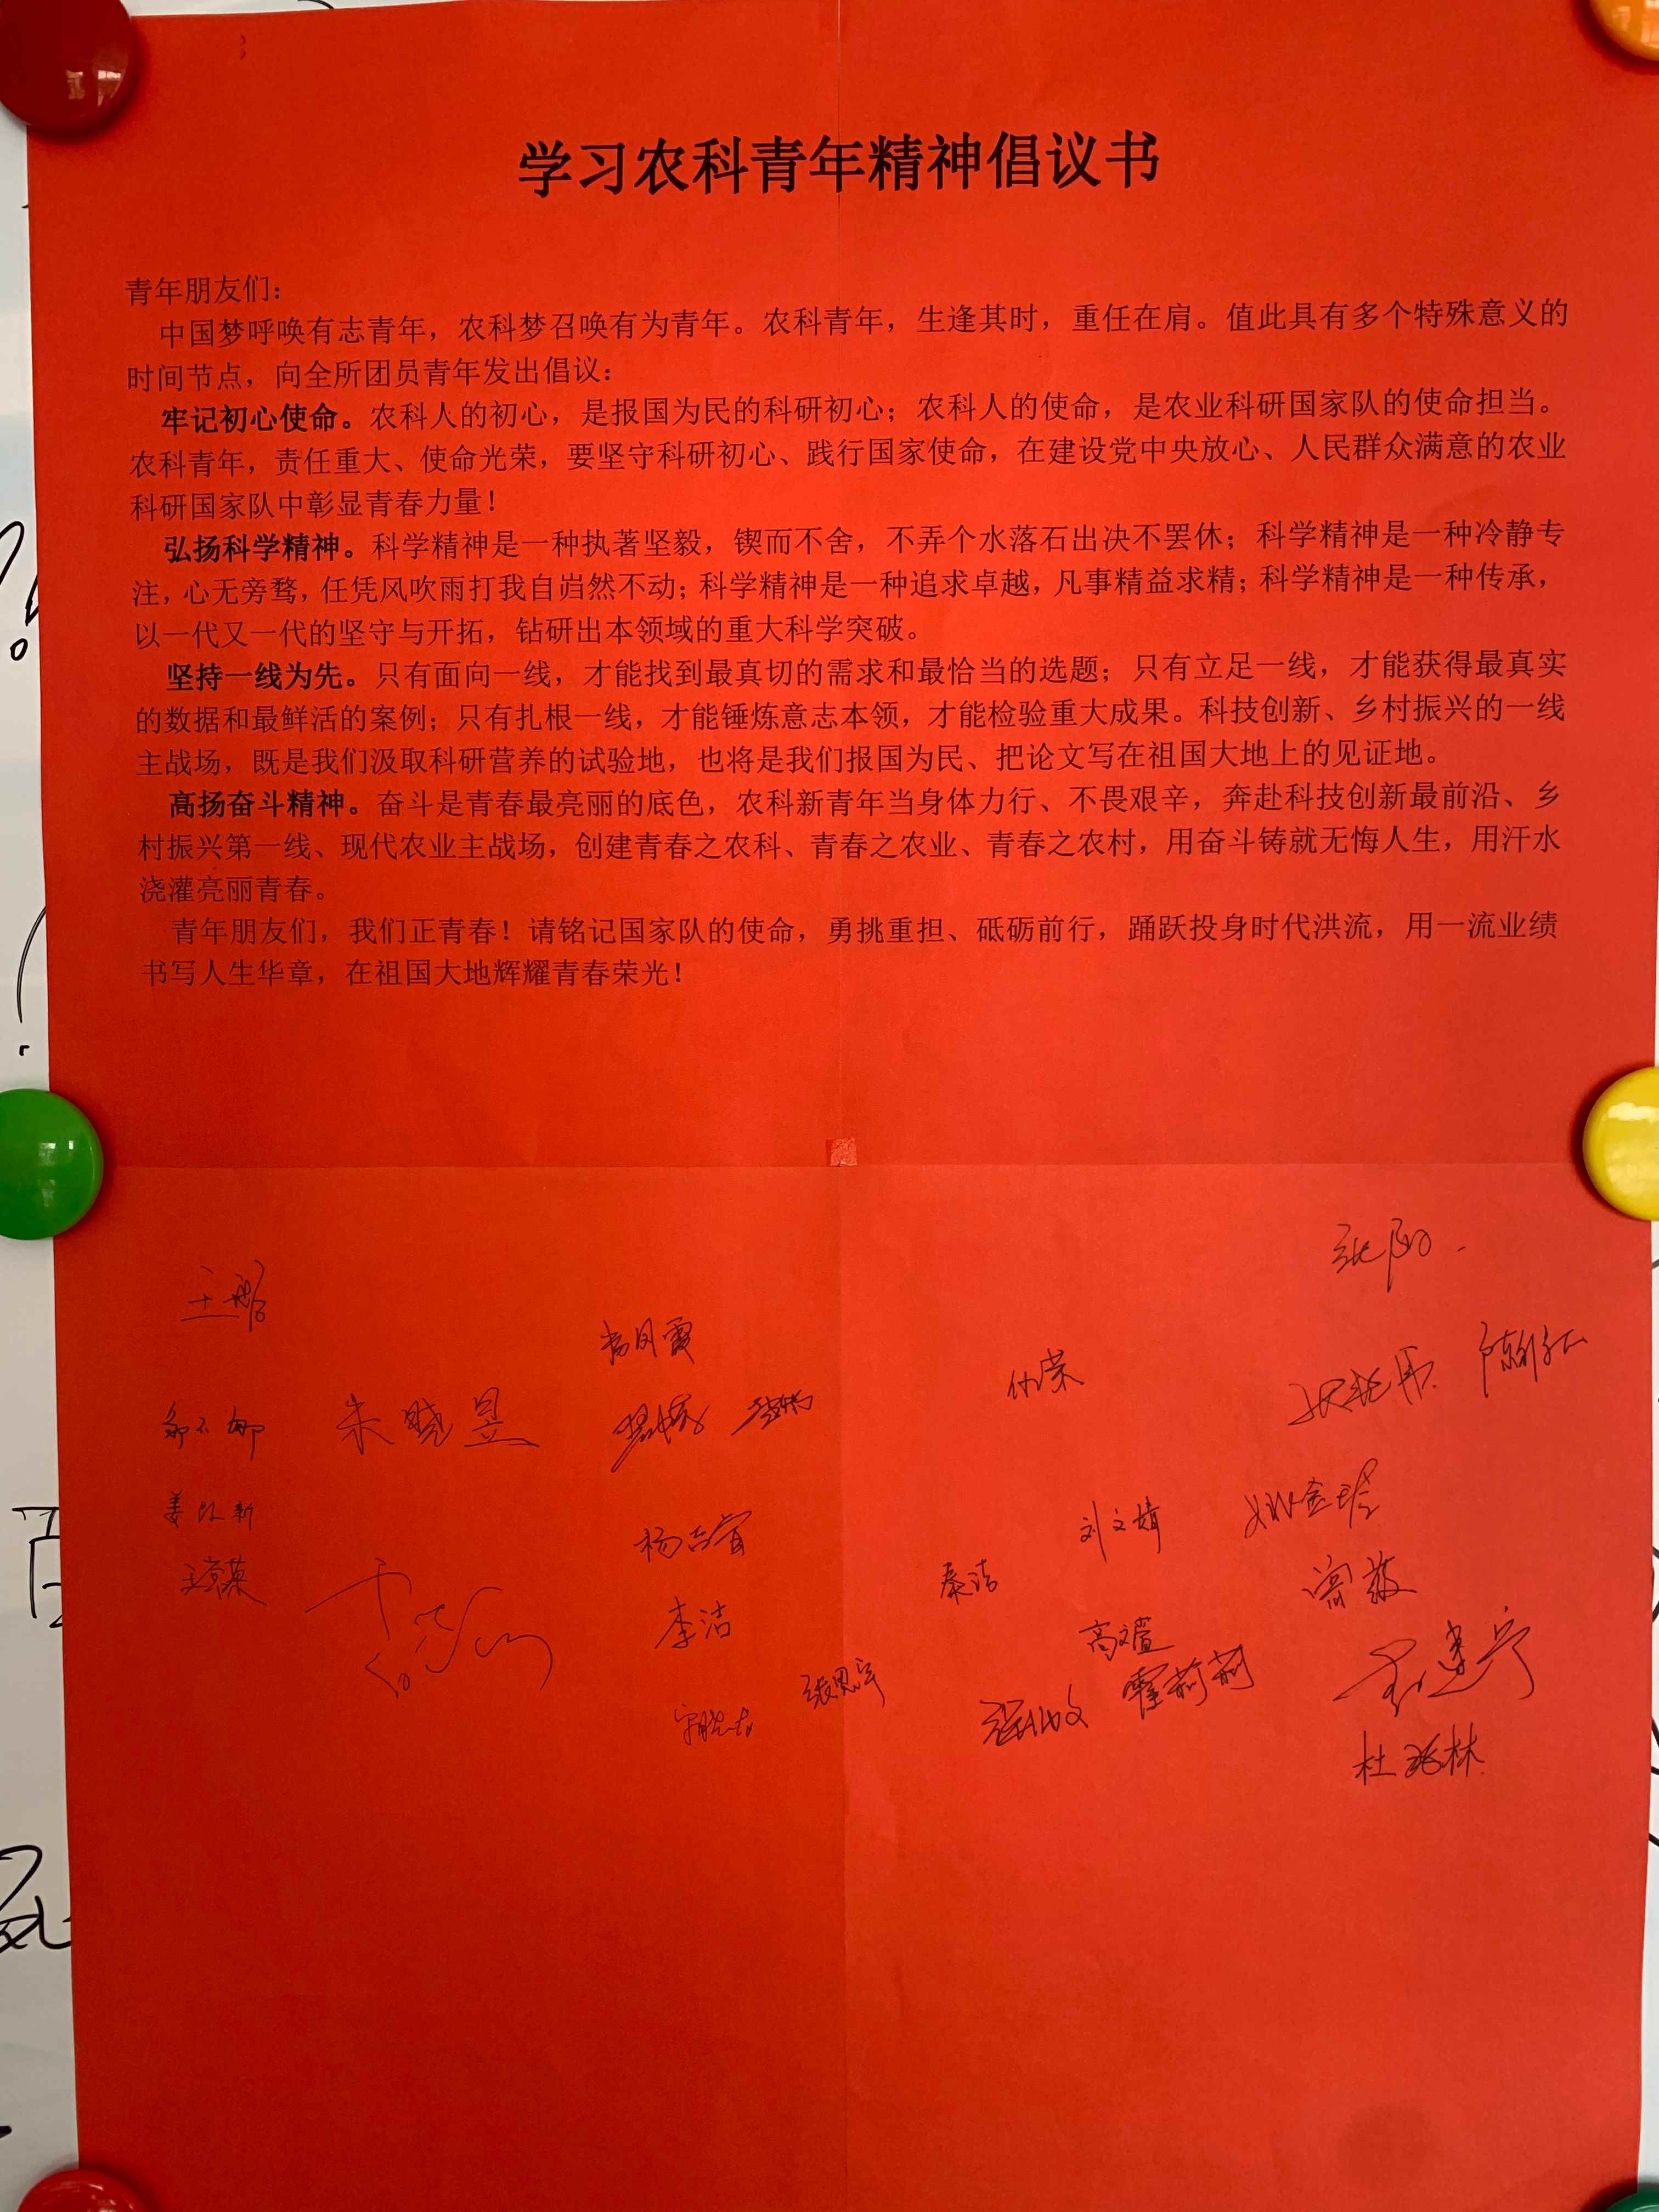 学习农科青年精神倡议书
青年朋友们：
中国梦呼唤有志青年，农科梦召唤有为青年。农科青年，生逢其时，重任在肩。值此具有多个特殊意义的
时间节点，向全所团员青年发出倡议：
牢记初心使命。农科人的初心，是报国为民的科研初心；农科人的使命，是农业科研国家队的使命担当。
农科青年，责任重大、使命光荣，要坚守科研初心、践行国家使命，在建设党中央放心、人民群众满意的农业
科研国家队中彰显青春力量！
弘扬科学精神。科学精神是一种执著坚毅，锲而不舍，不弄个水落石出决不罢休；科学精神是一种冷静专
注，心无旁骛，任凭风吹雨打我自岿然不动；科学精神是一种追求卓越，凡事精益求精；科学精神是一种传承，
以一代又一代的坚守与开拓，钻研出本领域的重大科学突破。
坚持一线为先。只有面向一线，才能找到最真切的需求和最恰当的选题；只有立足一线，才能获得最真实
的数据和最鲜活的案例；只有扎根一线，才能锤炼意志本领，才能检验重大成果。科技创新、乡村振兴的一线
主战场，既是我们汲取科研营养的试验地，也将是我们报国为民、把论文写在祖国大地上的见证地。
高扬奋斗精神。奋斗是青春最亮丽的底色，农科新青年当身体力行、不畏艰辛，奔赴科技创新最前沿、乡
村振兴第一线、现代农业主战场，创建青春之农科、青春之农业、青春之农村，用奋斗铸就无悔人生，用汗水
浇灌亮丽青春。
青年朋友们，我们正青春！请铭记国家队的使命，勇挑重担、砥砺前行，踊跃投身时代洪流，用一流业绩
书写人生华章，在祖国大地辉耀青春荣光！
张阳
朱晓昱
刘文婧
李洁
高文萱
霍莉莉
张思宇
杜兆林